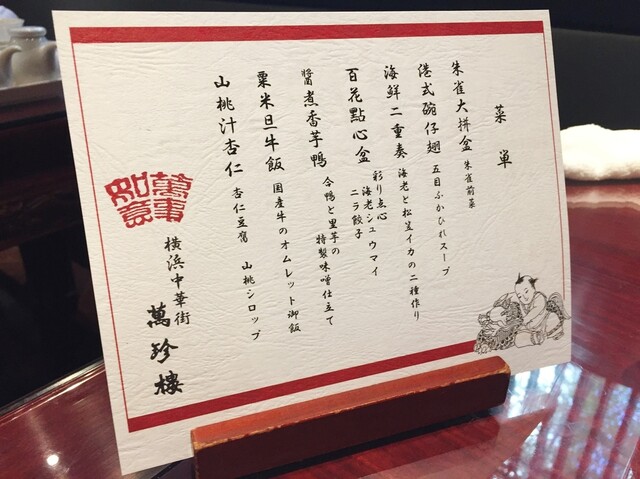 菜単
朱雀大拼盆 朱雀前菜
港式碗仔翅 五目ふかひれスープ
海鮮二重奏 海老と松笠イカの二種作り
百花點心盆 彩り点心
海老シュウマイ
ニラ餃子
醬煮香芋鴨 合鴨と里芋の
特製味噌仕立て
粟米旦牛飯 国産牛のオムレット御飯
山桃汁杏仁 杏仁豆腐 山桃シロップ
萬事如意
横浜中華街
萬珍樓